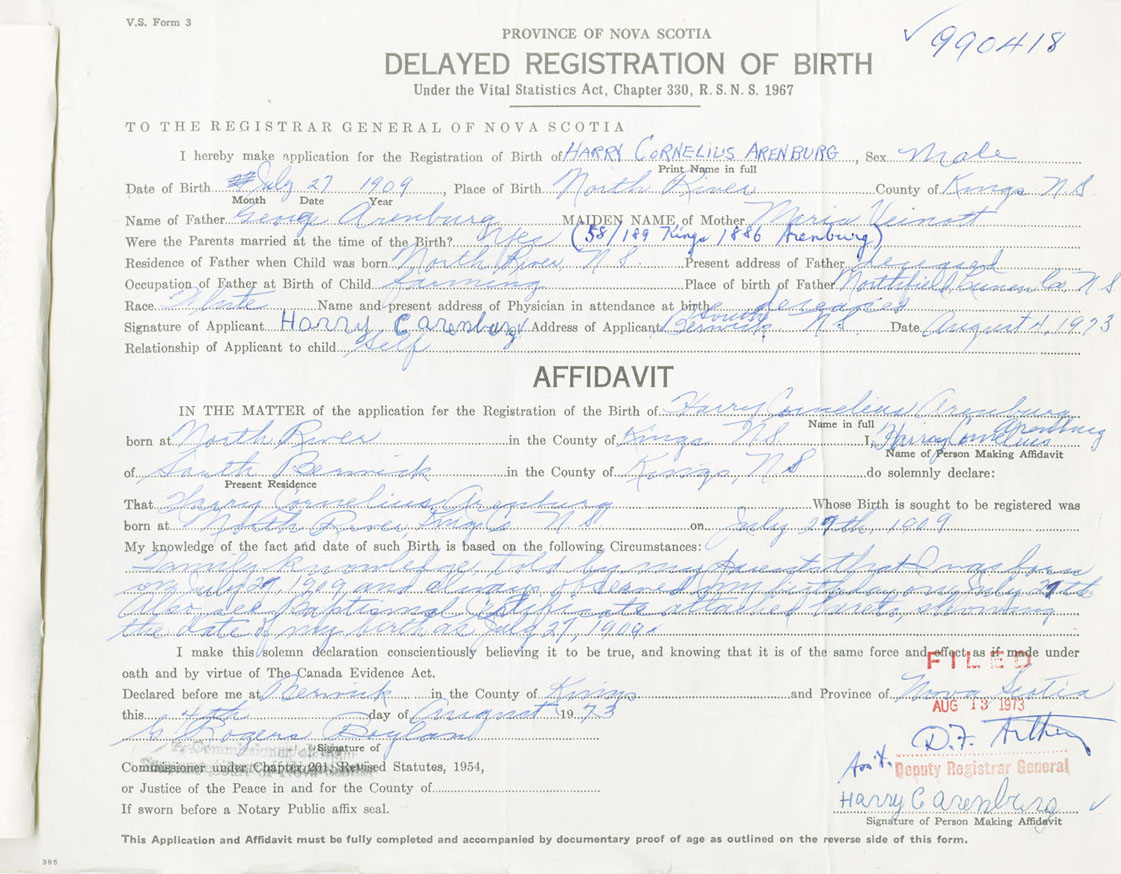 V.S. Form 3
990418
PROVINCE OF NOVA SCOTIA
DELAYED REGISTRATION OF BIRTH
Under the Vital Statistics Act, Chapter 330, R. S. N. S. 1967
TO THE REGISTRAR GENERAL OF NOVA SCOTIA
I hereby make application for the Registration of Birth of HARRY CORNELIUS ARENBURG, Sex Male
Print Name in full
Date of Birth July 27 1909, Place of Birth North River County of Kings N.S.
Month Date Year
Name of Father George Arenburg MAIDEN NAME of Mother Maria Veinott
Were the Parents married at the time of the Birth? Yes (58/189 Kings 1886 Arenburg)
Residence of Father when Child was born North River, N.S. Present address of Father deceased
Occupation of Father at Birth of Child farming Place of birth of Father Northfield Lunen Co. N S
Race White Name and present address of Physician in attendance at birth deceased
Signature of Applicant Harry C Arenburg Address of Applicant South Berwick N S Date August 4, 1973
Relationship of Applicant to child Self
AFFIDAVIT
IN THE MATTER of the application for the Registration of the Birth of Harry Cornelius Arenburg
Name in full
born at North River in the County of Kings N.S. I, Harry Cornelius Arenburg
Name of Person Making Affidavit
of South Berwick in the County of Kings, N S do solemnly declare:
Present Residence
That Harry Cornelius Arenburg Whose Birth is sought to be registered was
born at North River, Kings Co N S on July 27th 1909
My knowledge of the fact and date of such Birth is based on the following Circumstances:
Family knowledge, told by my parents that I was born
on July 27, 1909, and always observed my birthday on July 27th
Also see Baptismal Certificate attached hereto, showing
the date of my birth as July 27, 1909.
I make this solemn declaration conscientiously believing it to be true, and knowing that it is of the same force and effect as if made under
oath and by virtue of The Canada Evidence Act.
FILED
Declared before me at Berwick in the County of Kings and Province of Nova Scotia
AUG 13 1973
this 4th day of August 1973
G Rogers Boyland
D.F. Arthur
Signature of
Commissioner under Chapter 201, Revised Statutes, 1954,
Ass't. Deputy Registrar General
or Justice of the Peace in and for the County of
Harry C Arenburg
If sworn before a Notary Public affix seal.
Signature of Person Making Affidavit
This Application and Affidavit must be fully completed and accompanied by documentary proof of age as outlined on the reverse side of this form.
385